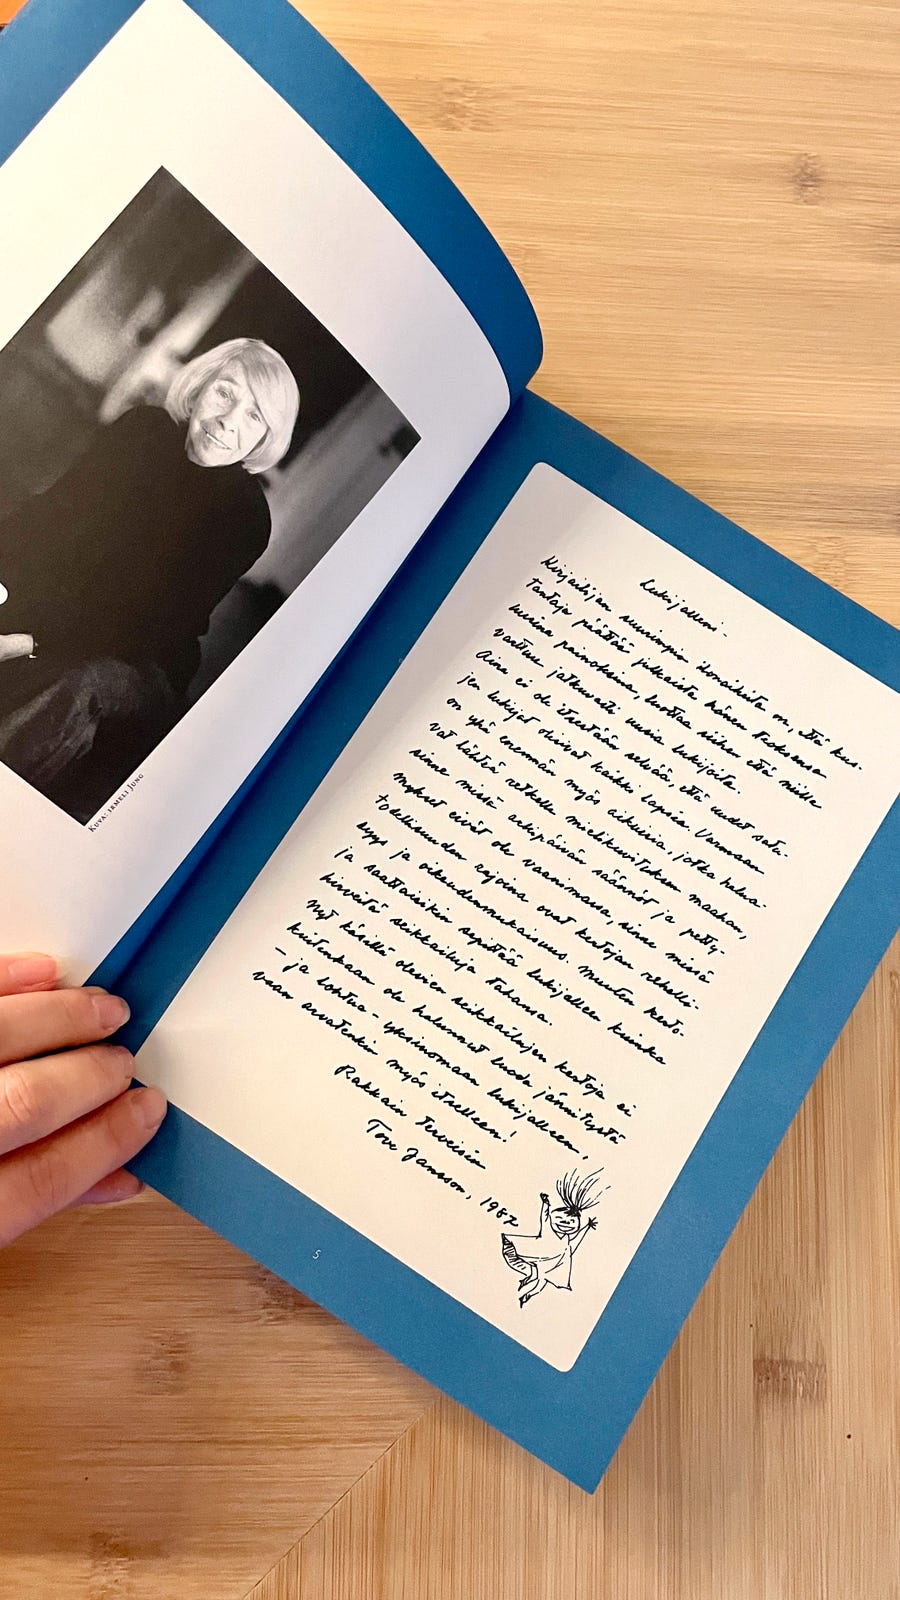 KUVA: IRMELI JUNG
Lukijalleni –
Kirjailijan suurimpia ilonaiheita on, että kus-
tantaja päättää julkaista hänen teoksensa
uusina painoksina, luottaa siihen että niille
varttuu jatkuvasti uusia lukijoita.
Aina ei ole itsestään selvää, että uudet satu-
jen lukijat olisivat kaikki lapsia. Varmaan
on yhä enemmän myös aikuisia, jotka halua-
vat lähteä retkelle mielikuvituksen maahan,
sinne missä arkipäivän säännöt ja petty-
mykset eivät ole vaanimassa, sinne missä
todellisuuden rajoina ovat kertojan rehelli-
syys ja oikeudenmukaisuus. Muuten kerto-
ja saattaisikin sepittää lukijalleen kuinka
hirveitä seikkailuja tahansa.
Nyt käsillä olevien seikkailujen kertoja ei
kuitenkaan ole halunnut luoda jännitystä
– ja lohtua – yksinomaan lukijalleen,
vaan arvatenkin myös itselleen!
Rakkain terveisin
Tove Jansson, 1987
5